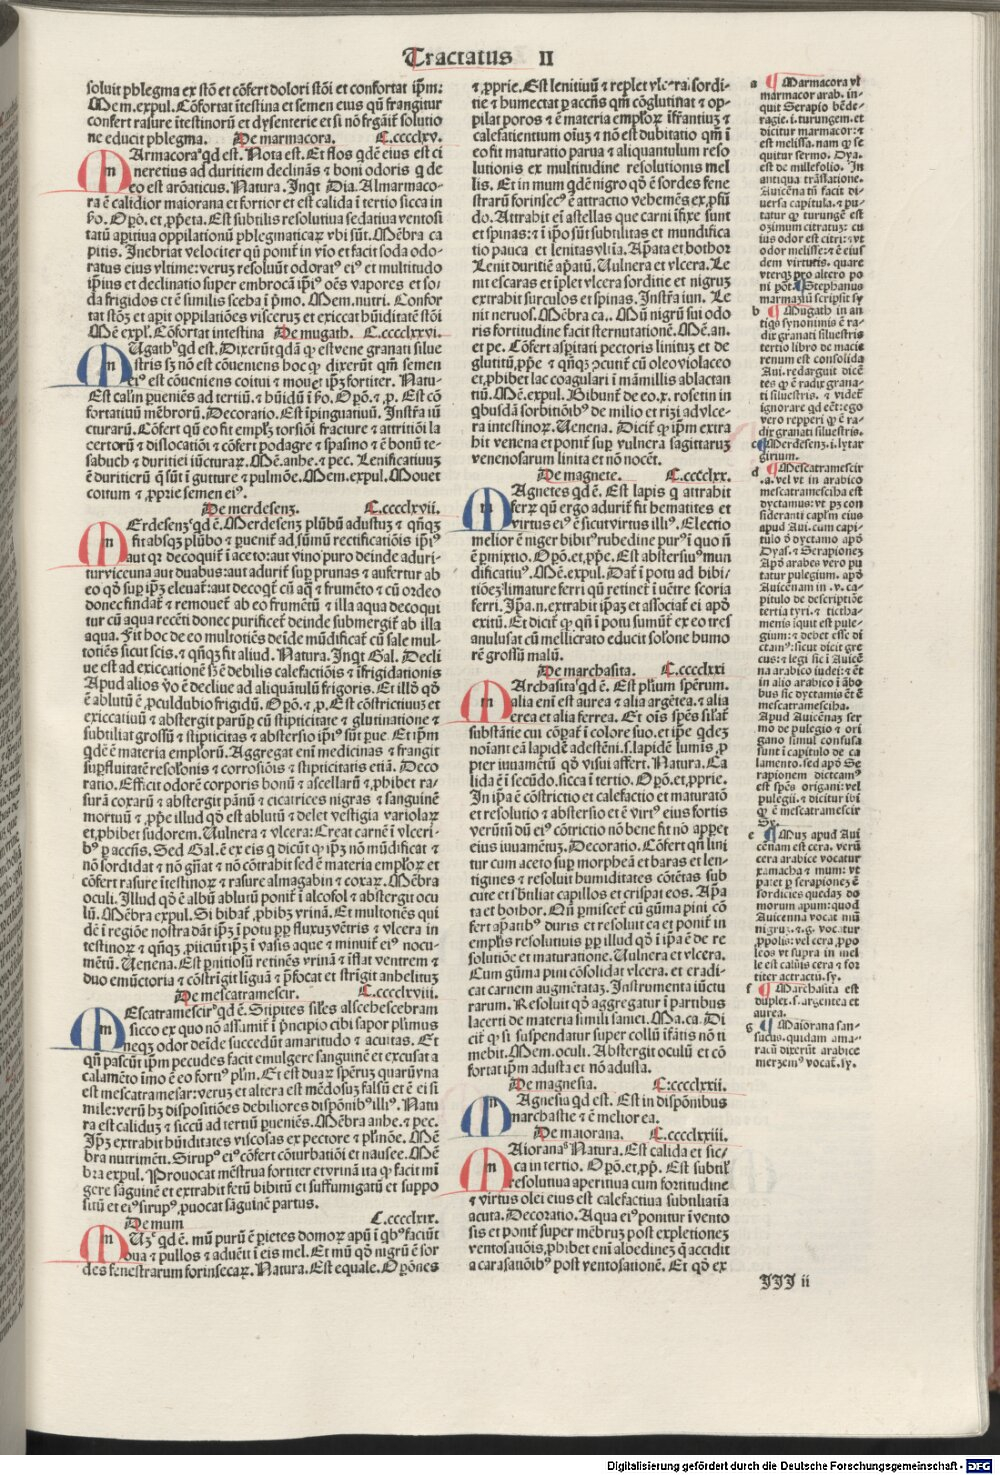 Tractatus II
soluit phlegma ex stõ et cõfert dolori stõi et confortat ip̃m:
Mem.expul. Cõfortat ĩtestina et semen eius qũ frangitur
confert rasure ĩtestinorũ et dysenterie et si nõ frãgit̃ solutio
ne educit phlegma. De marmacora. C.ccclxv.
ARmacora qd est. Nota est. Et flos qdẽ eius est ci
neretius ad duritiem declinãs et boni odoris
eo est arõaticus. Natura. Inqt Dia. Almarmaco-
ra ẽ calidior maiorana et fortior et est calida ĩ tertio sicca in
Est subtilis resolutiua sedatiua ventosi
tatũ apitiua oppilationũ phlegmaticaꝝ vbi sũt. Mẽbra ca
pitis. Inebriat velociter qũ ponit̃ in vĩo et facit soda odo-
ratus eius vltime: veruꝫ resoluũt et multitudo
et declinatio super embrocã oẽs vapores et so-
da frigidos et ẽ similis sceha ĩ pⁱmo. Mem.nutri. Confor
tat stõꝫ et apit oppilatiões visceruꝫ et exiccat hũiditatẽ stõi
Mẽ expl. Cõfortat intestina De mugath. C.cccclxvi.
est. Dixerũt qdã ꝙ est vene granati silue
stris sꝫ nõ est cõueniens hoc ꝙ dixerũt qm̃ semen
est cõueniens coitui et mouet ip̃ꝫ fortiter. Natu-
Est cal ĩn pueniẽs ad tertiũ. et hũidũ
fortatiuũ mẽbrorũ. Decoratio. Est ĩpinguatiuũ. Instr̃a iũ
cturarũ. Cõfert qũ eo fit emplꝫ torsiõi fracture et attritiõi la
certorũ et dislocatiõi et cõfert podagre et spasmo et ẽ bonũ te-
sabuch et duritiei iũcturaꝝ. Mẽ.anhe. et pec. Lenificatiuuꝫ
ẽ duritierũ q̃ sũt ĩ gutture et pulmõe. Mem.expul. Mouet
coitum et
De merdesenꝫ. C.cccclxvii.
Merdesenꝫ plũbũ adustuꝫ et qñqꝫ
fit absqꝫ plũbo et ad sũmũ rectificatiõis
aut decoquit̃ ĩ aceto: aut vino puro deinde aduri-
tur vice vna aut duabus: aut adurit̃ sup̃ prunas et aufertur ab
eo elenat̃: aut decoqt̃ cũ et frumẽto et cũ ordeo
donec findat̃ et remouet̃ ab eo frumẽtũ et illa aqua decoqui
tur cũ aqua recẽti donec purificet̃ deinde submergit̃ ab illa
aqua. Fit hoc de eo multotiẽs deĩde mũdificat̃ cũ sale mul-
totiẽs sicut scis. et qñqꝫ fit aliud. Natura. Inqt Gal. Decli
ue est ad exiccationẽ sꝫ ẽ debilis calefactiõis et ĩfrigidationis
Apud alios vo ẽ decliue ad aliquãtulũ frigoris. Et illõ qõ
ẽ ablutũ ẽ Est cõstrictiuuꝫ et
exiccatiuũ et abstergit parũp̃ cũ stipticitate et glutinatione et
subtiliat grossũ et stipticitas et abstersio sũt Et ip̃m
qdẽ ẽ materia emplorũ. Aggregat enĩ medicinas et frangit
sup̃fluitatẽ resolõnis et corrosiõis et stipticitatis etiã. Deco
ratio. Efficit odorẽ corporis bonũ et ascellarũ et phibet ra-
surã coxarũ et abstergit pãnũ et cicatrices nigras et sanguinẽ
mortuũ et illud qõ est ablutũ et delet vestigia variolaꝝ
et phibet sudorem. Vulnera et vlcera: Creat carnẽ ĩ vlceri-
Sed Gal. ẽ ex eis q dicũt ꝙ ip̃ꝫ nõ mũdificat et
nõ sordidat et nõ gñat et nõ cõtrahit sed ẽ materia emploꝝ et
cõfert rasure ĩtestinoꝝ et rasure almagabin et coxaꝝ. Mẽbra
oculi. Illud qõ ẽ albũ ablutũ ponit̃ ĩ alcofol et abstergit ocu
lũ. Mẽbra expul. Si bibat̃ phibꝫ vrinã. Et multotiẽs qui
dẽ ĩ regiõe nostra dãt ip̃ꝫ ĩ potu fluxuꝫ vẽtris et vlcera in
testinoꝝ et qñqꝫ piiciũt ip̃ꝫ ĩ vasis aque et minuit nocu-
mẽtũ. Venena. Est pnitiosũ retinẽs vrinã et ĩflat ventrem et
duo emũctoria et cõstrĩgit lĩguã et p̃focat et strĩgit anhelituꝫ
De mescatramescir. C.cccclxviii.
EScatramescir qd ẽ. Stipites siles alscehescebram
sicco ex quo nõ assumit̃ ĩ pⁱncipio cibi sapor plimus
neqꝫ odor deĩde succedũt amaritudo et acuitas. Et
qñ pascũt ip̃m pecudes facit emulgere sanguinẽ et excusat a
calamẽto ĩmo ẽ eo Et est duaꝝ sp̃eruꝫ quarũ vna
est mescatramesar: veruꝫ et altera est mẽdosuꝫ falsũ et ẽ ei si
mile: verũ hꝫ dispositiões debiliores Natu
ra est calidus et siccũ ad tertiũ pueniẽs. Mẽbra anhe. et pec.
Ip̃ꝫ extrabit hũiditates viscosas ex pectore et plmõe. Mẽ
bra nutrimẽti. cõfert cõturbatiõi et nausee. Mẽ
bra expul. Prouocat mẽstrua fortiter et vrinã ita ꝙ facit mĩ
gere sãguinẽ et extrahit fetũ bibitũ et suffumigatũ et suppo
sitũ et puocat sãguinẽ partus.
De mum C.cccclxix.
qd ẽ. mũ purũ ẽ parietes domoꝝ apũ ĩ faciũt
oua et pullos et aduẽit ĩ eis mel. Et mũ qõ nigrũ ẽ sor
des fenestrarum forinsecaꝝ. Natura. Est equale. Opõnes
et pprie. Est lenitiuũ et replet vlcera. sordi-
tie et humectat p accñs qm̃ cõglutinat et op-
pilat poros et ẽ materia emploꝝ ĩfrantiuꝫ et
calefatientium oĩuꝫ et nõ est dubitatio qm̃ ĩ
eo fit maturatio parua et aliquantulum reso
lutionis ex multitudine resolutionis mel
lis. Et in mum qdẽ nigro qõ ẽ sordes fene
strarũ ẽ attractio vehemẽs
do. Attrahit eĩ astellas que carni ĩfixe sunt
et spinas: et ĩ ipõ sũt subtilitas et mundifica
tio pauca et lenitas Apata et bothor
Lenit duritiẽ apatũ. Vulnera et vlcera. Le
nit escaras et ĩplet vlcera sorditie et nigruꝫ
extrahit surculos et spinas. Instr̃a iun. Le
nit neruos. Mẽbra ca.. Mũ nigrũ sui odo
ris fortitudine facit sternutationẽ. Mẽ.an.
et pe. Cõfert aspitati pectoris linituꝫ et de
glutitũ et qñqꝫ cũ oleo violaceo
et phibet lac coagulari ĩ mãmillis ablactan
tiũ. Mẽ.expul. Bibunt̃ de eo.x. rosetin in
qbusdã sorbitiõibꝰ de milio et rizi ad vlce-
ra intestinoꝝ. Venena. Dicit̃ ꝙ ip̃m extra
hit venena et ponit̃ sup vulnera sagittaruꝫ
venenosarum linita et nõ nocẽt.
De magnete. C.cccclxx.
Agnetes qd ẽ. Est lapis q attrahit
ferꝝ qũ ergo adurit̃ fit hematites et
virtus ẽ sicut virtus Electio
melior ẽ niger rubedine ĩ quo ñ
ẽ Est
Mẽ.expul. Dat̃ ĩ potu ad bibi-
limature ferri qũ retinet̃ ĩ vẽtre scoria
ferri. extrahit ip̃aꝫ et associat̃ ei apõ
exitũ. Et dicit̃ ꝙ qñ ĩ potu sumũt̃ ex eo tres
anulusat cũ mellicrato educit solõne humo
rẽ grossũ malũ.
De marchasita. C.cccclxxi
ARchasita qd ẽ. Est plⁱium sp̃erum.
alia enĩ est aurea et alia argẽtea. et alia
erea et alia ferrea. Et oĩs sp̃es silat̃
substãtie cui cõparat̃ ĩ colore suo. et ip̃e qdeꝫ
noĩant eã lapidẽ adestẽni.s.lapidẽ lumis
pter iuuamẽtũ qõ visui affert. Natura. Ca
lida ẽ ĩ secũdo. sicca ĩ tertio. Opõ. et pprie.
In ip̃a ẽ cõstrictio et calefactio et maturatõ
et resolutio et abstersio et ẽ eius fortis
verũtñ dũ cõtrictio nõ bene fit nõ apparet
eius iuuamẽtuꝫ. Decoratio. Cõfert qñ lini
tur cum aceto sup morpheã et baras et len-
tigines et resoluit humiditates cõtẽtas sub
cute et sbtiliat capillos et crispat eos. Apa
ta et bothor. Qñ pmiscet̃ cũ gũma pini cõ
fert apatibꝰ duris et resoluit ea et ponit̃ in
emplĩs resolutiuis illud qõ ĩ ip̃a ẽ de re
solutiõe et maturatione. Vulnera et vlcera.
Cum gũma pini cõsolidat vlcera. et eradi-
cat carnem augmẽtataꝫ. Instrumenta iũctu
rarum. Resoluit qõ aggregatur ĩ partibus
lacerti de materia simili saniei. Mã.ca. Di
cit̃ ꝙ si suspendatur super collũ ĩfãtis nõ ti
mebit. Mem.oculi. Abstergit oculũ et cõ
fortat ip̃m adusta et nõ adusta.
De magnesia. C:cccclxxii.
Agnesia qd est. Est in dispõnibus
marchasite et ẽ melior ea.
De maiorana. C.cccclxxiii.
AIorana Natura. Est calida et sic-
ca in tertio. Opõ. et pp̃. Est subtil
resolutiua aperitiua cum fortitudine
et virtus olei eius est calefactiua subtiliatiua
acuta. Decoratio. Aqua ponitur ĩ vento
sis et ponit̃ super mẽbruꝫ post expletioneꝫ
ventosatiõis phibet enĩ albedineꝫ q̃ accidit
a carasatiõibꝰ post ventosationẽ. Et qõ ex
a Marmacora vl
marmacor arab. in-
quit Serapio bẽde-
ragie.i.turungem. et
dicitur marmacor: et
est melissa. nam ꝙ se
quitur sermo. Dya.
est de millefolio. In
antiqua trãslatione.
Auicẽna tñ facit di-
uersa capitula. et pu-
tatur ꝙ turungẽ est
ozimum citratuꝫ: cu
ius odor est citri: et vt
odor melisse: et ẽ eius
dem virtutis. quare
vterqꝫ pro altero po
ni põt. Stephanus
marmaziũ scripsit sy
b Mugath in an
tiqs synonimis ẽ ra-
dix granati siluestris
tertio libro de macie
renum est consolida
Aui. redarguit dicẽ
tes ꝙ ẽ radix grana-
ti siluestris. et videt̃
ignorare qd ẽet: ego
vero repperi ꝙ ẽ ra-
dix granati siluestris.
c Merdesenꝫ.i.lytar
girium.
d Mescatramescir
.a. vel vt in arabico
mescatramesciha est
dyctamus: vt pꝫ con
sideranti caplm eius
apud Aui. cum capi-
tulo õ dyctamo apõ
Dyas. et Serapioneꝫ
Apõ arabes vero pu
tatur pulegium. apõ
Auicẽnam in.v.ca-
pitulo de descriptiõe
tertia tyri. et tictha-
menis ĩquit est pule-
gium: et debet esse di
ctam: sicut dicit gre
cus: et legi sic ĩ Auicẽ
na arabico iudei: et ẽt
in alio arabico ĩ ãbo
bus sic dyctamis ẽt ẽ
mescatramesciha.
Apud Auicẽnaꝫ ser
mo de pulegio et ori
gano simul confusa
sunt ĩ capitulo de ca
lamento. sed apõ Se
rapionem dictcam
est sp̃es origani: vel
pulegii. et dicitur ibi
ꝙ ẽ mescatramescir
Sy.
e Muꝫ apud Aui
cẽnam est cera. verũ
cera arabice vocatur
xamacha et mum: vt
patet p serapionẽ: ẽ
sordicies quedaꝫ do
morum apum: quod
Auicenna vocat mũ
nigruꝫ. et.g. vocatur
ppolis: vel cera ppo
leos vt supra in mel
le est calĩnis cera et for
titer attractũ. sy.
f Marchasita est
duplex.s.argentea et
aurea.
g Maiorana san-
sucus. quidam ama-
racũ dixerũt arabice
merzemꝰ vocat̃. sy.
JJJ ii
Digitalisierung gefördert durch die Deutsche Forschungsgemeinschaft - DFG